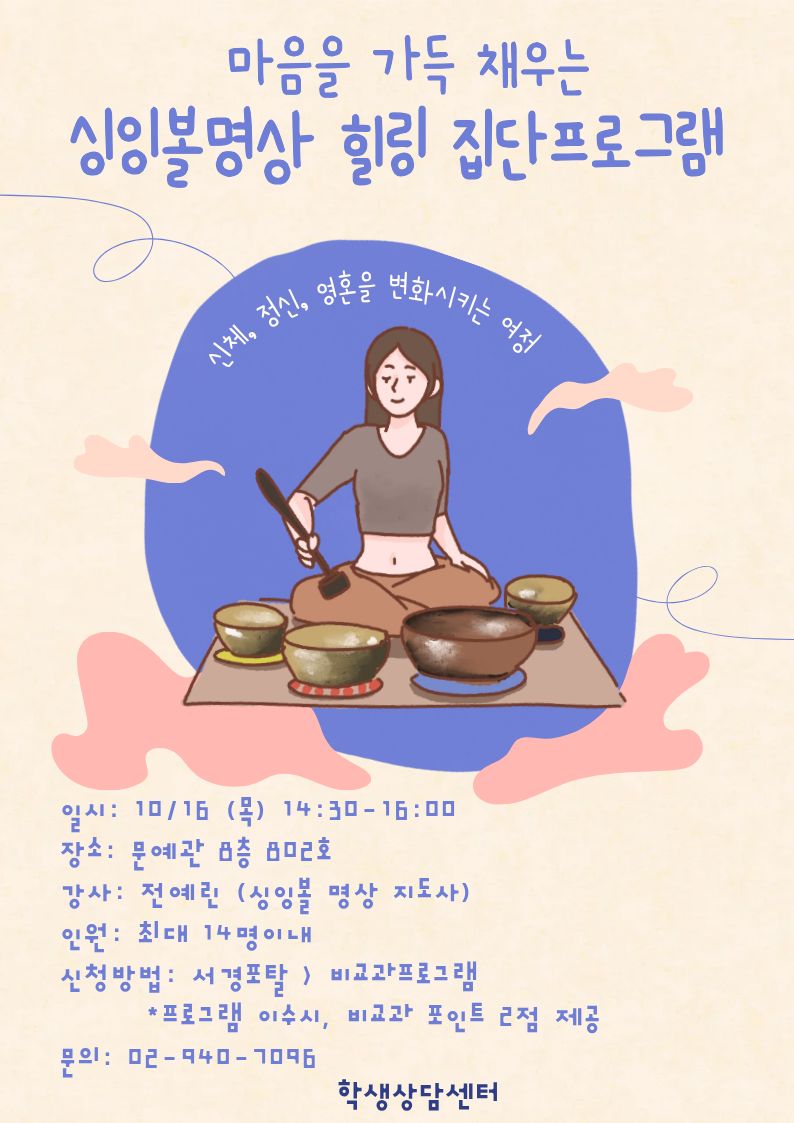 마음을 가득 채우는
싱잉볼명상 힐링 집단프로그램
신체, 정신, 영혼을 변화시키는 여정
일시: 10/16 (목) 14:30-16:00
장소: 문예관 8층 802호
강사: 전예린 (싱잉볼 명상 지도사)
인원: 최대 14명이내
신청방법: 서경포탈 > 비교과프로그램
*프로그램 이수시, 비교과 포인트 2점 제공
문의: 02-940-7096
학생상담센터